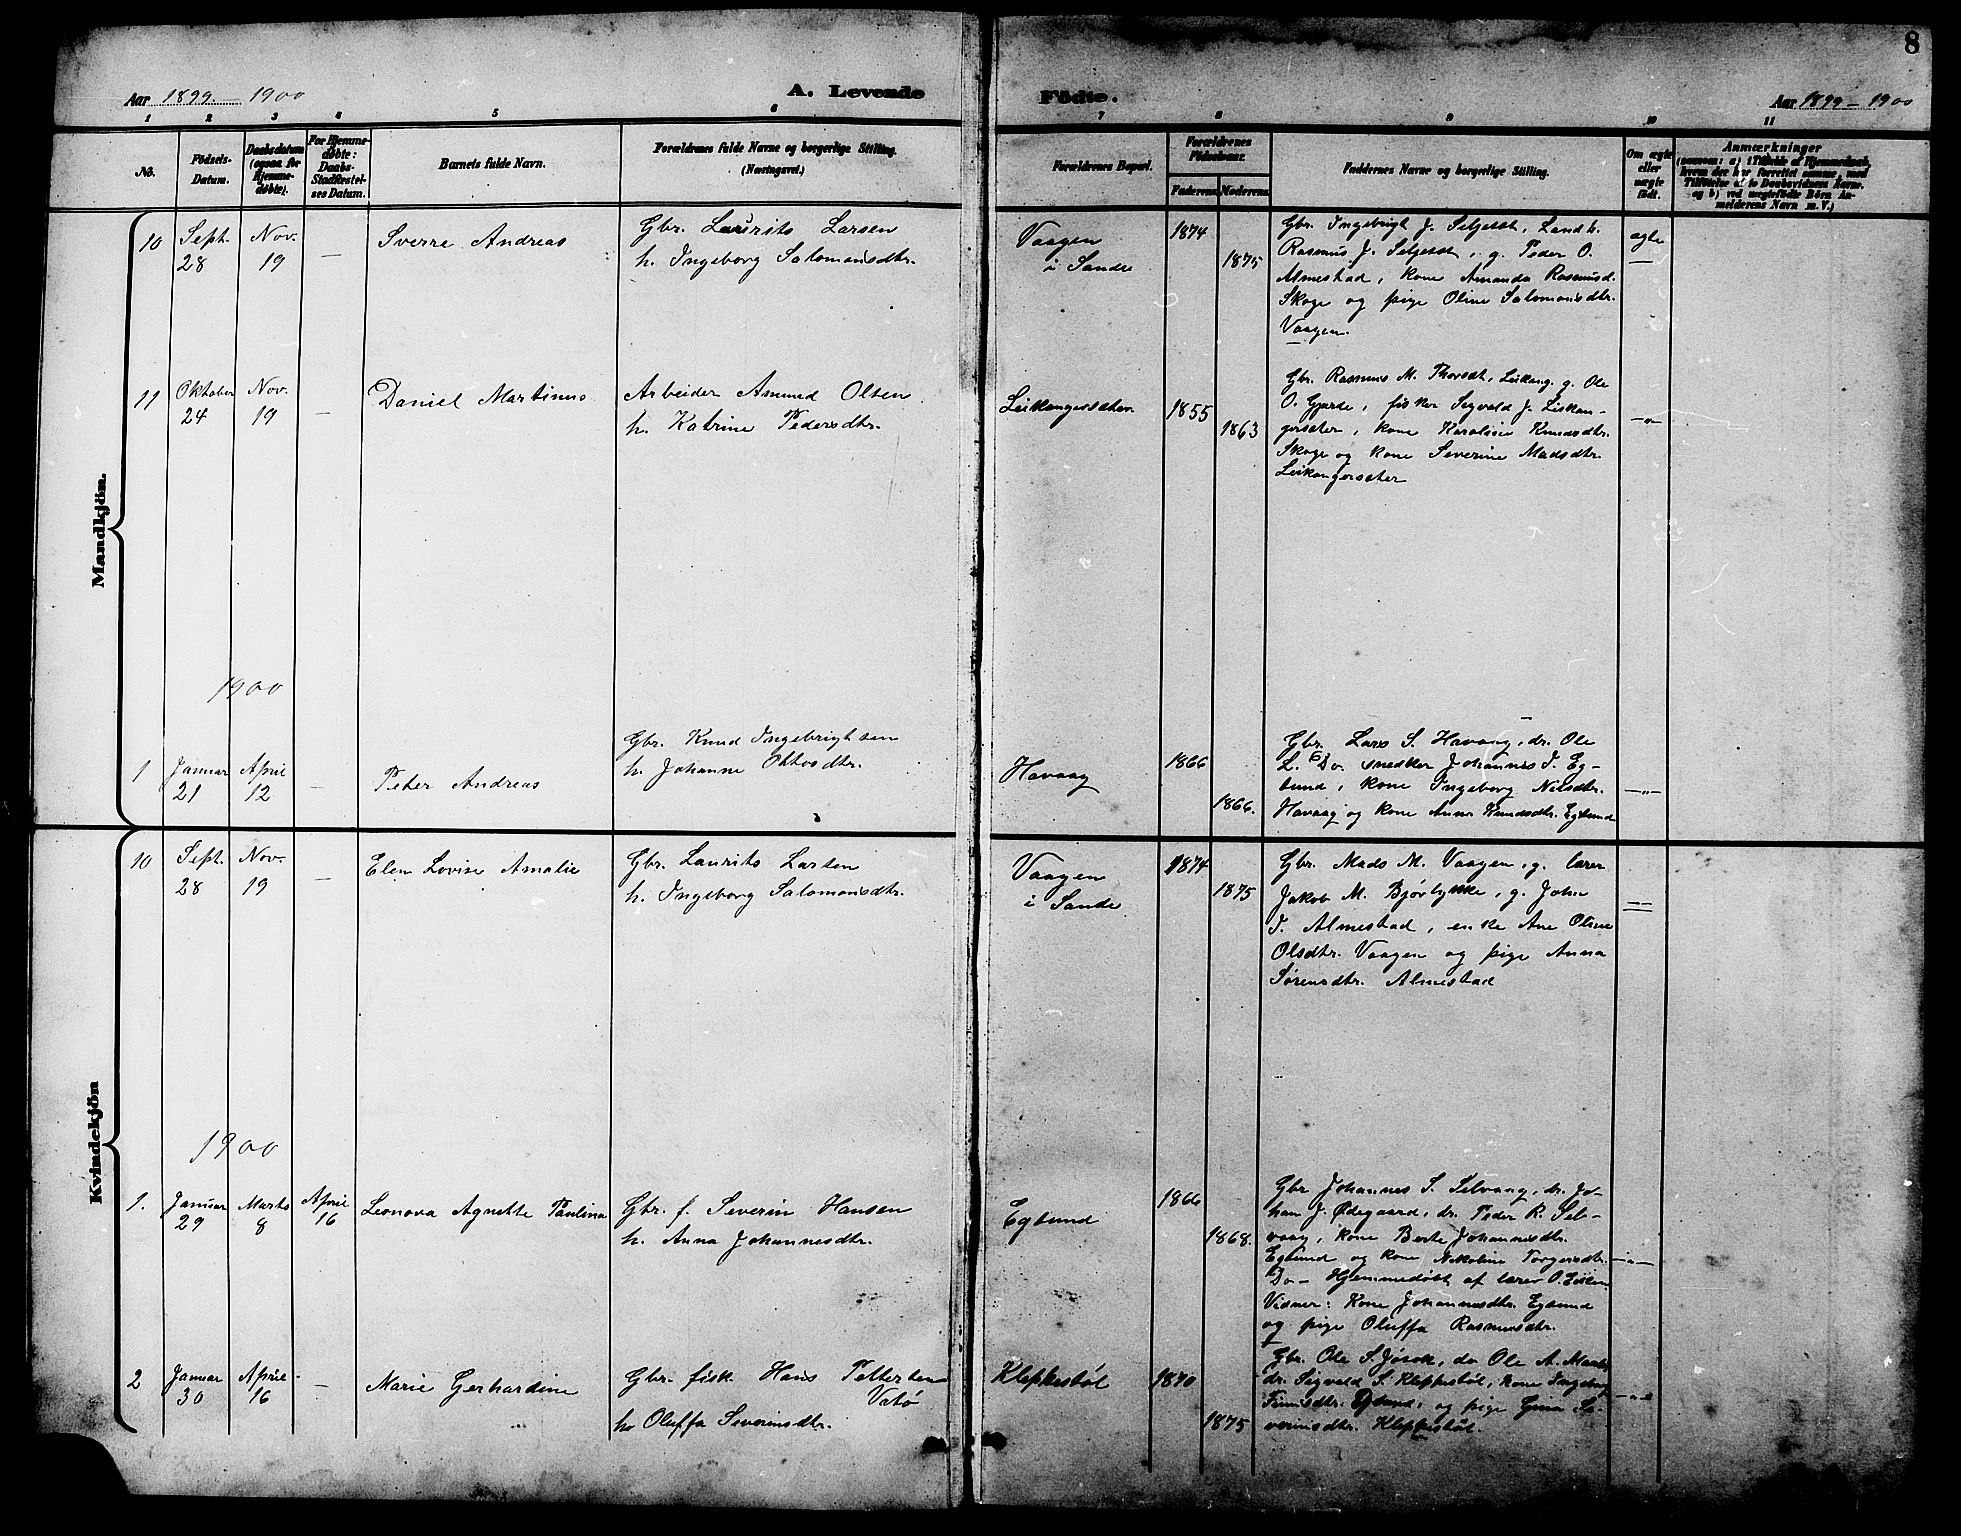 8
Aar 1899 - 1900
A. Levende
Födte.
Aar 1899 - 1900
1 2 3 4 5 6 7 8 9 10 11
No.
Födsels-
Datum.
Daabsdatum
(ogsaa for
Hjemme-
døbte).
For Hjemme-
døbte:
Daabs-
Stadfæstel-
ses Datum.
Barnets fulde Navn.
Forældrenes fulde Navne og borgerlige Stilling.
(Næringsvei.)
Forældrenes Bopæl.
Forældrenes
Födselsaar.
Faderens.
Moderens.
Faddernes Navne og borgerlige Stilling.
Om ægte
eller
uægte
født.
Anmærkninger
Mandkjön.
10
Sept.
28
Nov.
19
—
Sverre Andreas
Gbr. Laurits Larsen
h. Ingeborg Salomonsdtr.
Vaagen
i Sande
1874
1875
Gbr. Ingebrigt J. Seljeset, Landh.
Rasmus J. Seljeset, g. Peder O.
Almestad, kone Amanda Rasmusd.
Skoge og pige Oline Salomonsdtr.
Vaagen.
ægte
11
Oktober
24
Nov.
19
—
Daniel Martinus
Arbeider Amund Olsen
h. Katrine Pedersdtr.
Leikangersæter
1855
1863
Gbr. Rasmus M. Thorset, Leikang. g. Ole
O. Gjerde, fisker Sigvald J. Leikan-
gersæter, kone Karoline Knudsdtr.
Skoge og kone Severine Madsdtr.
Leikangersæter
—"—
1900
1
Januar
21
April
12
—
Peter Andreas
Gbr. Knud Ingebrigtsen
h. Johanne Ottosdtr.
Havaag
1866
1866.
Gbr. Lars S. Havaag, dr. Ole
L. Do. snedker Johannes I. Eg-
sund, kone Ingeborg Nilsdtr.
Havaag og kone Anna Knudsdtr. Egsund
—"—
Kvindekjön
10
Sept.
28
Nov.
19
—
Elen Lovise Amalie
Gbr. Laurits Larsen
h. Ingeborg Salomonsdtr.
Vaagen
i Sande
1874
1875
Gbr. Mads M. Vaagen, g. lærer
Jakob M. Bjørlykke, g. John
J. Almestad, enke Ane Oline
Olsdtr. Vaagen og pige Anna
Sørensdtr. Almestad
1900
1.
Januar
29
Marts
8
April
16
Leonova Agnette Paulina
Gbr. f. Severin Hansen
h. Anna Johannesdtr.
Egsund
1866
1868.
Gbr Johannes S. Selvaag, dr. Jo-
han J. Ødegaard, dr. Peder R. Sel-
vaag, kone Berte Johannesdtr.
Egsund og kone Nikoline Torgersdtr.
Do — Hjemmedøbt af lærer O.
Vidner: Kone Johannesdtr. Egsund
og pige Oluffa Rasmusdtr.
—"—
2
Januar
30
April
16
—
Marie Gerhardine
Gbr. fisk. Hans Pettersen
Vatø
h. Oluffa Severinsdtr.
Kleppestøl
1870
1875
Gbr. Ole S. Jøsok, do Ole A.
dr. Sigvald S. Kleppestøl, kone Ingeborg
Finnsdtr. Egsund, og pige Gina Se-
verinsdtr. Kleppestøl.
—"—